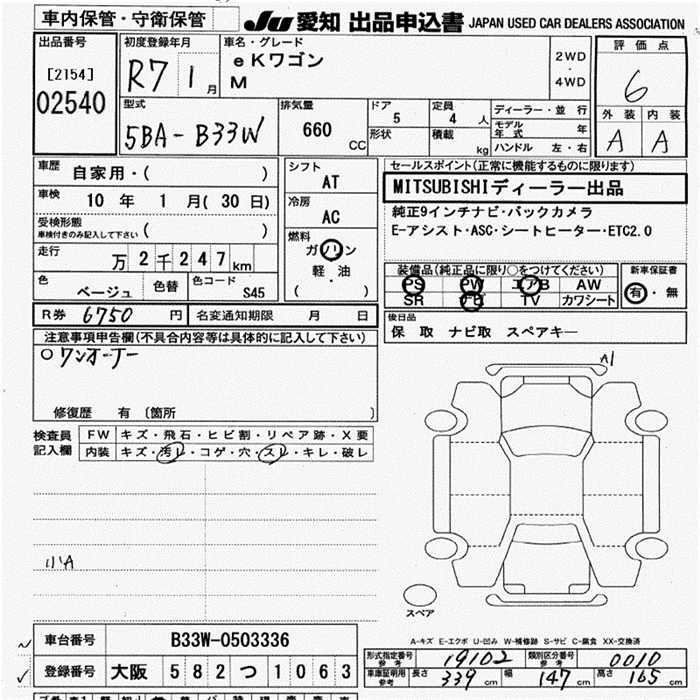 車内保管・守衛保管
JU 愛知 出品申込書 JAPAN USED CAR DEALERS ASSOCIATION
出品番号
[2154]
02540
初度登録年月
R7 1 月
車名・グレード
eKワゴン
M
2WD
・
4WD
評価点
6
外装 内装
A A
型式
5BA-B33W
排気量
660 CC
ドア 5
形状
定員 4 人
積載 kg
ディーラー・並行
モデル年式 年
ハンドル 左・右
車歴
自家用・( )
車検
10 年 1 月( 30 日)
受検形態
車検付きのみ記入して下さい ( )
走行
万 2 千 2 4 7 km
色 ベージュ
色替
色コード S45
シフト
AT
冷房
AC
燃料
ガソリン
軽・油
( )
セールスポイント(正常に機能するものに限ります)
MITSUBISHIディーラー出品
純正9インチナビ・バックカメラ
E-アシスト・ASC・シートヒーター・ETC2.0
装備品(純正品に限り○をつけてください)
PS PW エアB AW
SR ナビ TV カワシート
新車保証書
有・無
R券 6750 円 名変通知期限 月 日
後日品
保 取 ナビ取 スペアキー
注意事項申告欄(不具合内容等は具体的に記入して下さい)
○ワンオーナー
修復歴 有 〔箇所 〕
検査員記入欄
FW キズ・飛石・ヒビ割・リペア跡・X要
内装 キズ・汚レ・コゲ・穴・スレ・キレ・破レ
小A
A1
スペア
A-キズ E-エクボ U-凹み W-補修跡 S-サビ C-腐食 XX-交換済
車台番号 B33W-0503336
登録番号 大阪 5 8 2 つ 1 0 6 3
型式指定番号 参考 19102 類別区分番号 参考 0010
車庫証明用 参考 長さ 339 cm 幅 147 cm 高さ 165 cm